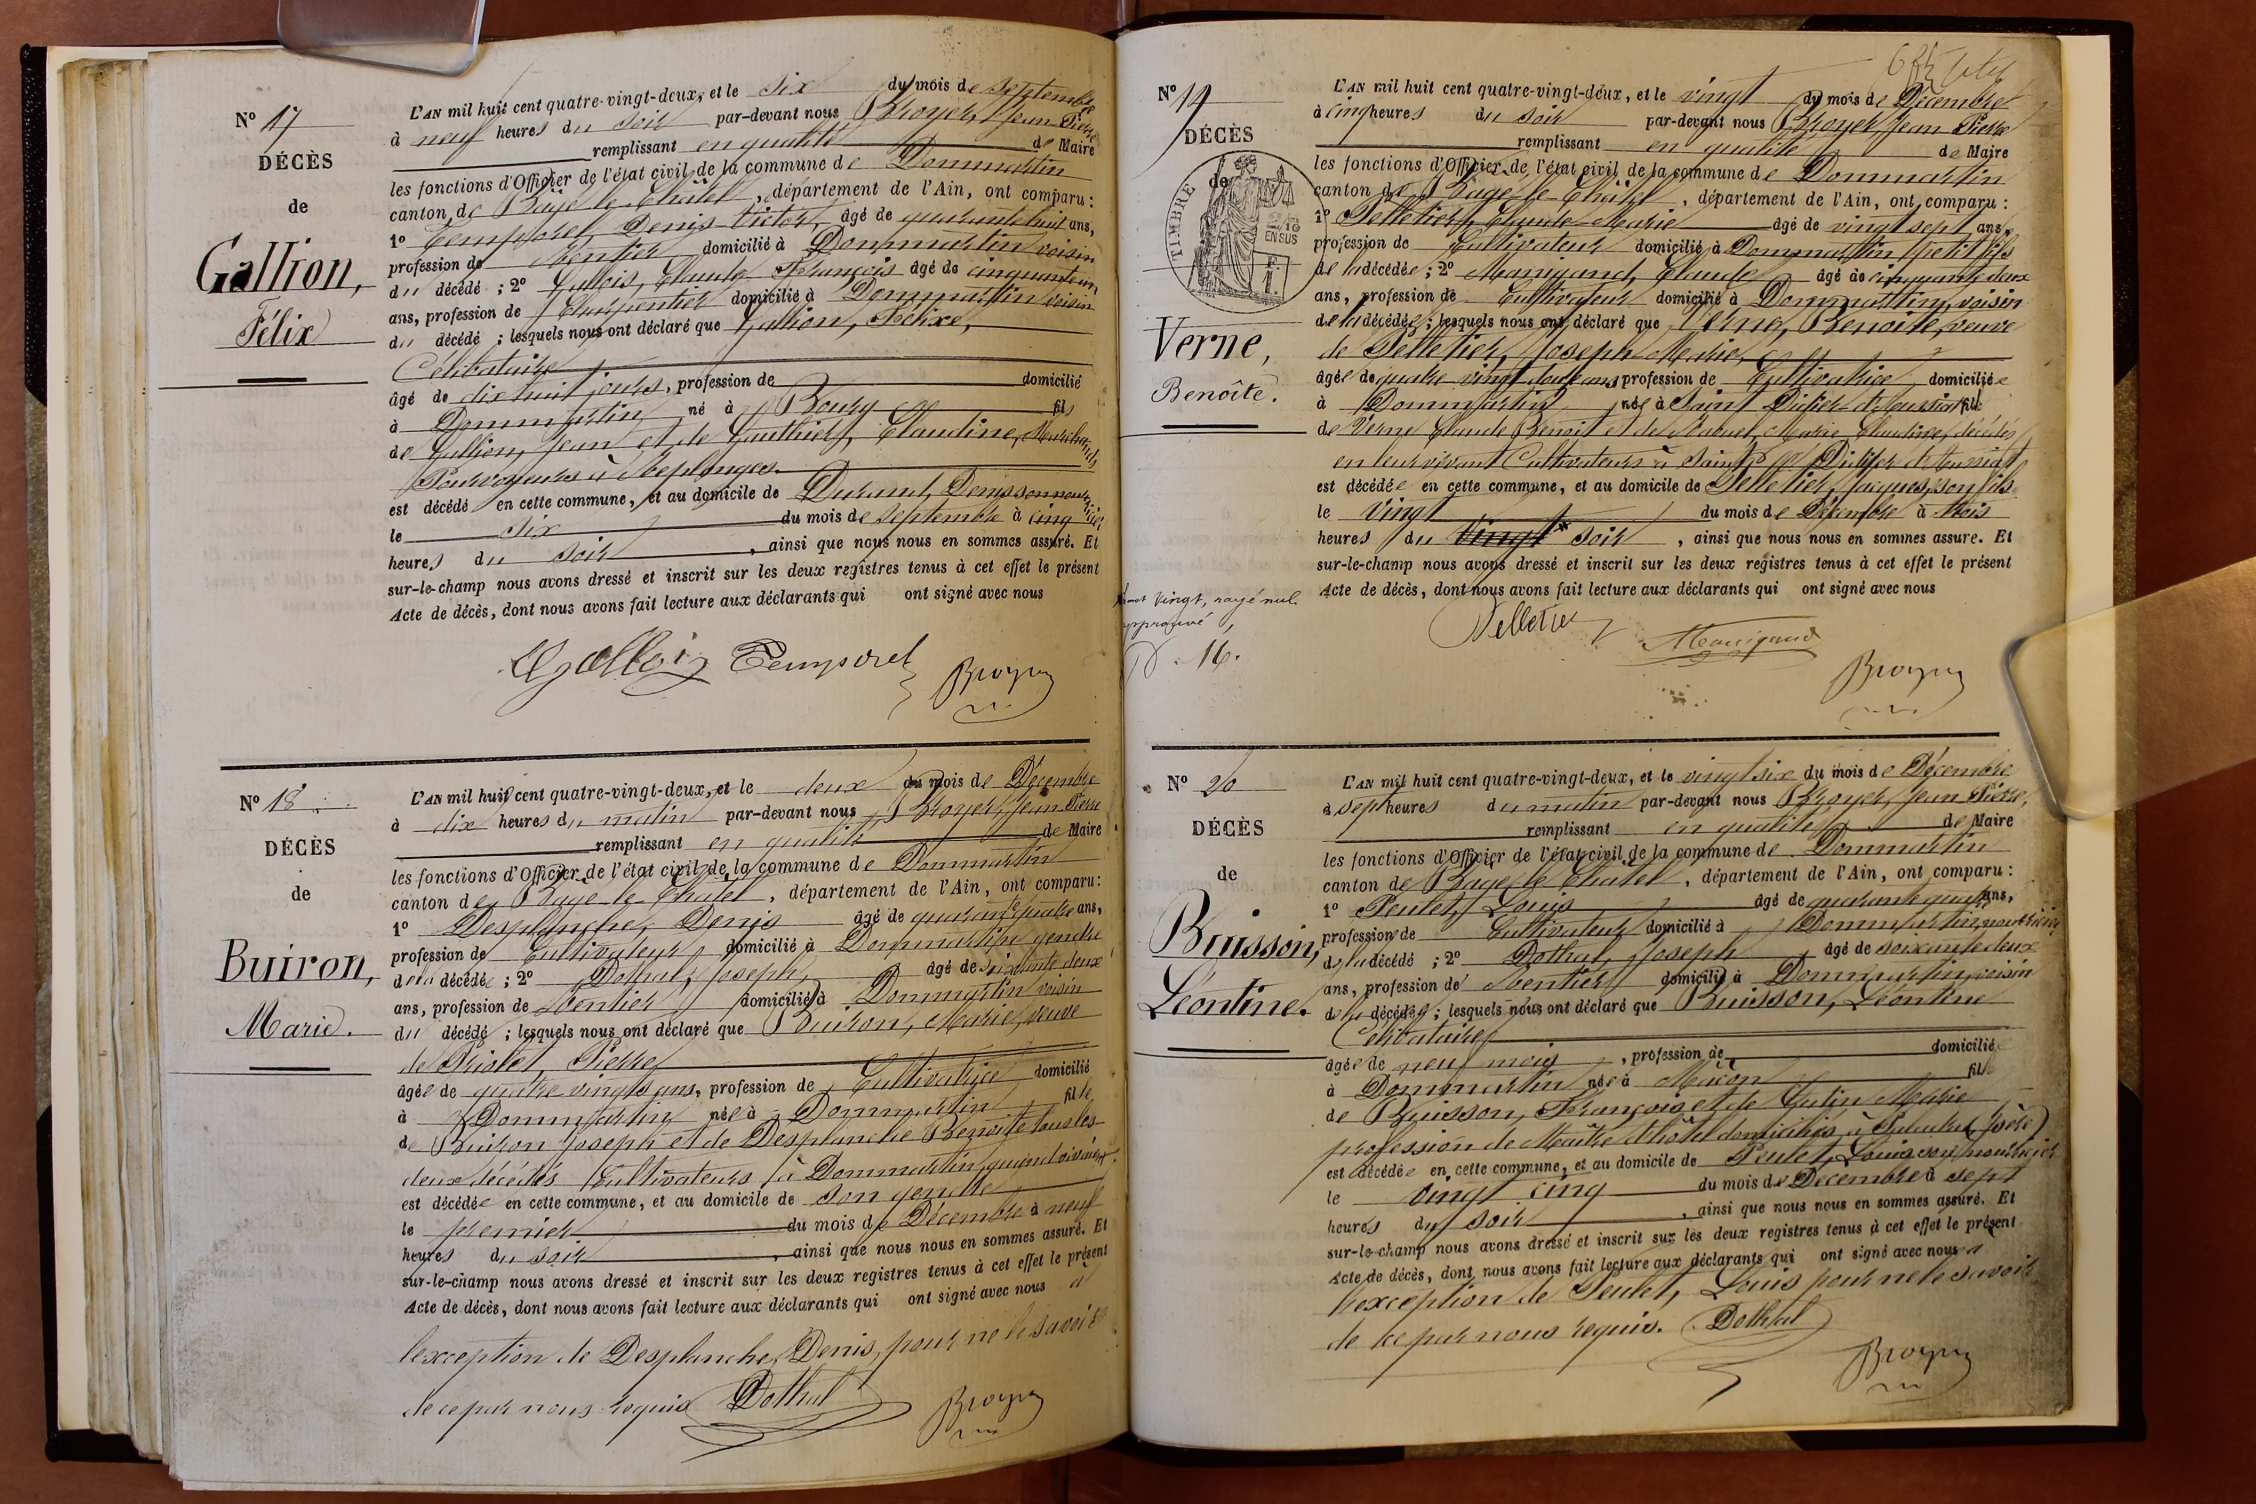 N° 17
DÉCÈS
de
Gallion,
Félix
L'AN mil huit cent quatre-vingt-deux, et le six du mois de Septembre
à neuf heures du soir par-devant nous Broyer, Jean Pierre
remplissant en qualité de Maire
les fonctions d'Officier de l'état civil de la commune de Dommartin
canton de Bagé-le-Châtel, département de l'Ain, ont comparu :
1° Temporel, Denis-Victor, âgé de quarante huit ans,
profession de Rentier domicilié à Dommartin voisin
du décédé ; 2° Gallois, Claude François âgé de cinquante un
ans, profession de Charpentier domicilié à Dommartin voisin
du décédé ; lesquels nous ont déclaré que Gallion, Félixe,
Célibataire
âgé de dix huit jours, profession de domicilié
à Dommartin né à Bourg fils
de Gallion, Jean et de Gauthier, Claudine, Marchands
Pourvoyeurs à Replonges
est décédé en cette commune, et au domicile de Durand, Denis son nourricier
le six du mois de Septembre à cinq
heures du soir, ainsi que nous nous en sommes assuré. Et
sur-le-champ nous avons dressé et inscrit sur les deux registres tenus à cet effet le présent
Acte de décès, dont nous avons fait lecture aux déclarants qui ont signé avec nous
Gallois Temporel
Broyer
N° 18
DÉCÈS
de
Buiron,
Marie.
L'AN mil huit cent quatre-vingt-deux, et le deux du mois de Décembre
à dix heures du matin par-devant nous Broyer, Jean Pierre
remplissant en qualité de Maire
les fonctions d'Officier de l'état civil de la commune de Dommartin
canton de Bagé-le-Chatel, département de l'Ain, ont comparu :
1° Desplanche, Denis âgé de quarante quatre ans,
profession de Cultivateur domicilié à Dommartin gendre
de la décédée ; 2° Dothal, Joseph, âgé de soixante deux
ans, profession de Rentier domicilié à Dommartin voisin
du décédé ; lesquels nous ont déclaré que Buiron, Marie, veuve
de Priolet, Pierre
âgée de quatre vingts ans, profession de Cultivatrice domicilié
à Dommartin née à Dommartin fille
de Buiron Joseph et de Desplanche Benoite tous les
deux décédés Cultivateurs à Dommartin, quand vivaient
est décédée en cette commune, et au domicile de son gendre
le premier du mois de Décembre à neuf
heures du soir, ainsi que nous nous en sommes assuré. Et
sur-le-champ nous avons dressé et inscrit sur les deux registres tenus à cet effet le présent
Acte de décès, dont nous avons fait lecture aux déclarants qui ont signé avec nous à
l'exception de Desplanche, Denis, pour ne le savoir
de ce par nous requis Dothal
Broyer
N° 19
DÉCÈS
de
TIMBRE
EN SUS
Verne,
Benoîte.
mot vingt, rayé nul.
approuvé
16.
L'AN mil huit cent quatre-vingt-deux, et le vingt du mois de Décembre
à cinq heures du soir par-devant nous Broyer, Jean Pierre
remplissant en qualité de Maire
les fonctions d'Officier de l'état civil de la commune de Dommartin
canton de Bagé-le-Châtel, département de l'Ain, ont comparu :
1° Pelletier, Claude-Marie âgé de vingt sept ans,
profession de Cultivateur domicilié à Dommartin petit fils
de la décédée ; 2° Manigand, Claude âgé de cinquante deux
ans, profession de Cultivateur domicilié à Dommartin, voisin
de la décédée ; lesquels nous ont déclaré que Verne, Benoite, veuve
de Pelletier, Joseph Marie,
âgée de quatre vingt douze ans profession de Cultivatrice domiciliée
à Dommartin née à Saint Didier d'Aussiat fille
de Verne Claude Benoit et de Marie Claudine, décédés
en leur vivant Cultivateurs à Saint Didier d'Aussiat
est décédée en cette commune, et au domicile de Pelletier, Jacques, son fils
le vingt du mois de Décembre à trois
heures du vingt soir, ainsi que nous nous en sommes assure. Et
sur-le-champ nous avons dressé et inscrit sur les deux registres tenus à cet effet le présent
Acte de décès, dont nous avons fait lecture aux déclarants qui ont signé avec nous
Pelletier
Manigand
Broyer
N° 20
DÉCÈS
de
Buisson,
Léontine.
L'AN mil huit cent quatre-vingt-deux, et le vingt six du mois de Décembre
à sept heures du matin par-devant nous Broyer, Jean Pierre,
remplissant en qualité de Maire
les fonctions d'Officier de l'état civil de la commune de Dommartin
canton de Bagé-le-Châtel, département de l'Ain, ont comparu :
1° Peulet, Louis âgé de quarante quatre ans,
profession de Cultivateur domicilié à Dommartin, nourricier
de la décédé ; 2° Dothal, Joseph âgé de soixante deux
ans, profession de Rentier domicilié à Dommartin, voisin
de la décédée ; lesquels nous ont déclaré que Buisson, Léontine
Célibataire
âgée de neuf mois, profession de domiciliée
à Dommartin née à Mâcon fille
de Buisson, François et de Gutin Marie
profession de Maître d'hôtel domiciliés à
est décédée en cette commune, et au domicile de Peulet, Louis son nourricier
le vingt cinq du mois de Décembre à sept
heures du soir, ainsi que nous nous en sommes assuré. Et
sur-le-champ nous avons dressé et inscrit sur les deux registres tenus à cet effet le présent
Acte de décès, dont nous avons fait lecture aux déclarants qui ont signé avec nous à
l'exception de Peulet, Louis pour ne le savoir
de ce par nous requis. Dothal
Broyer